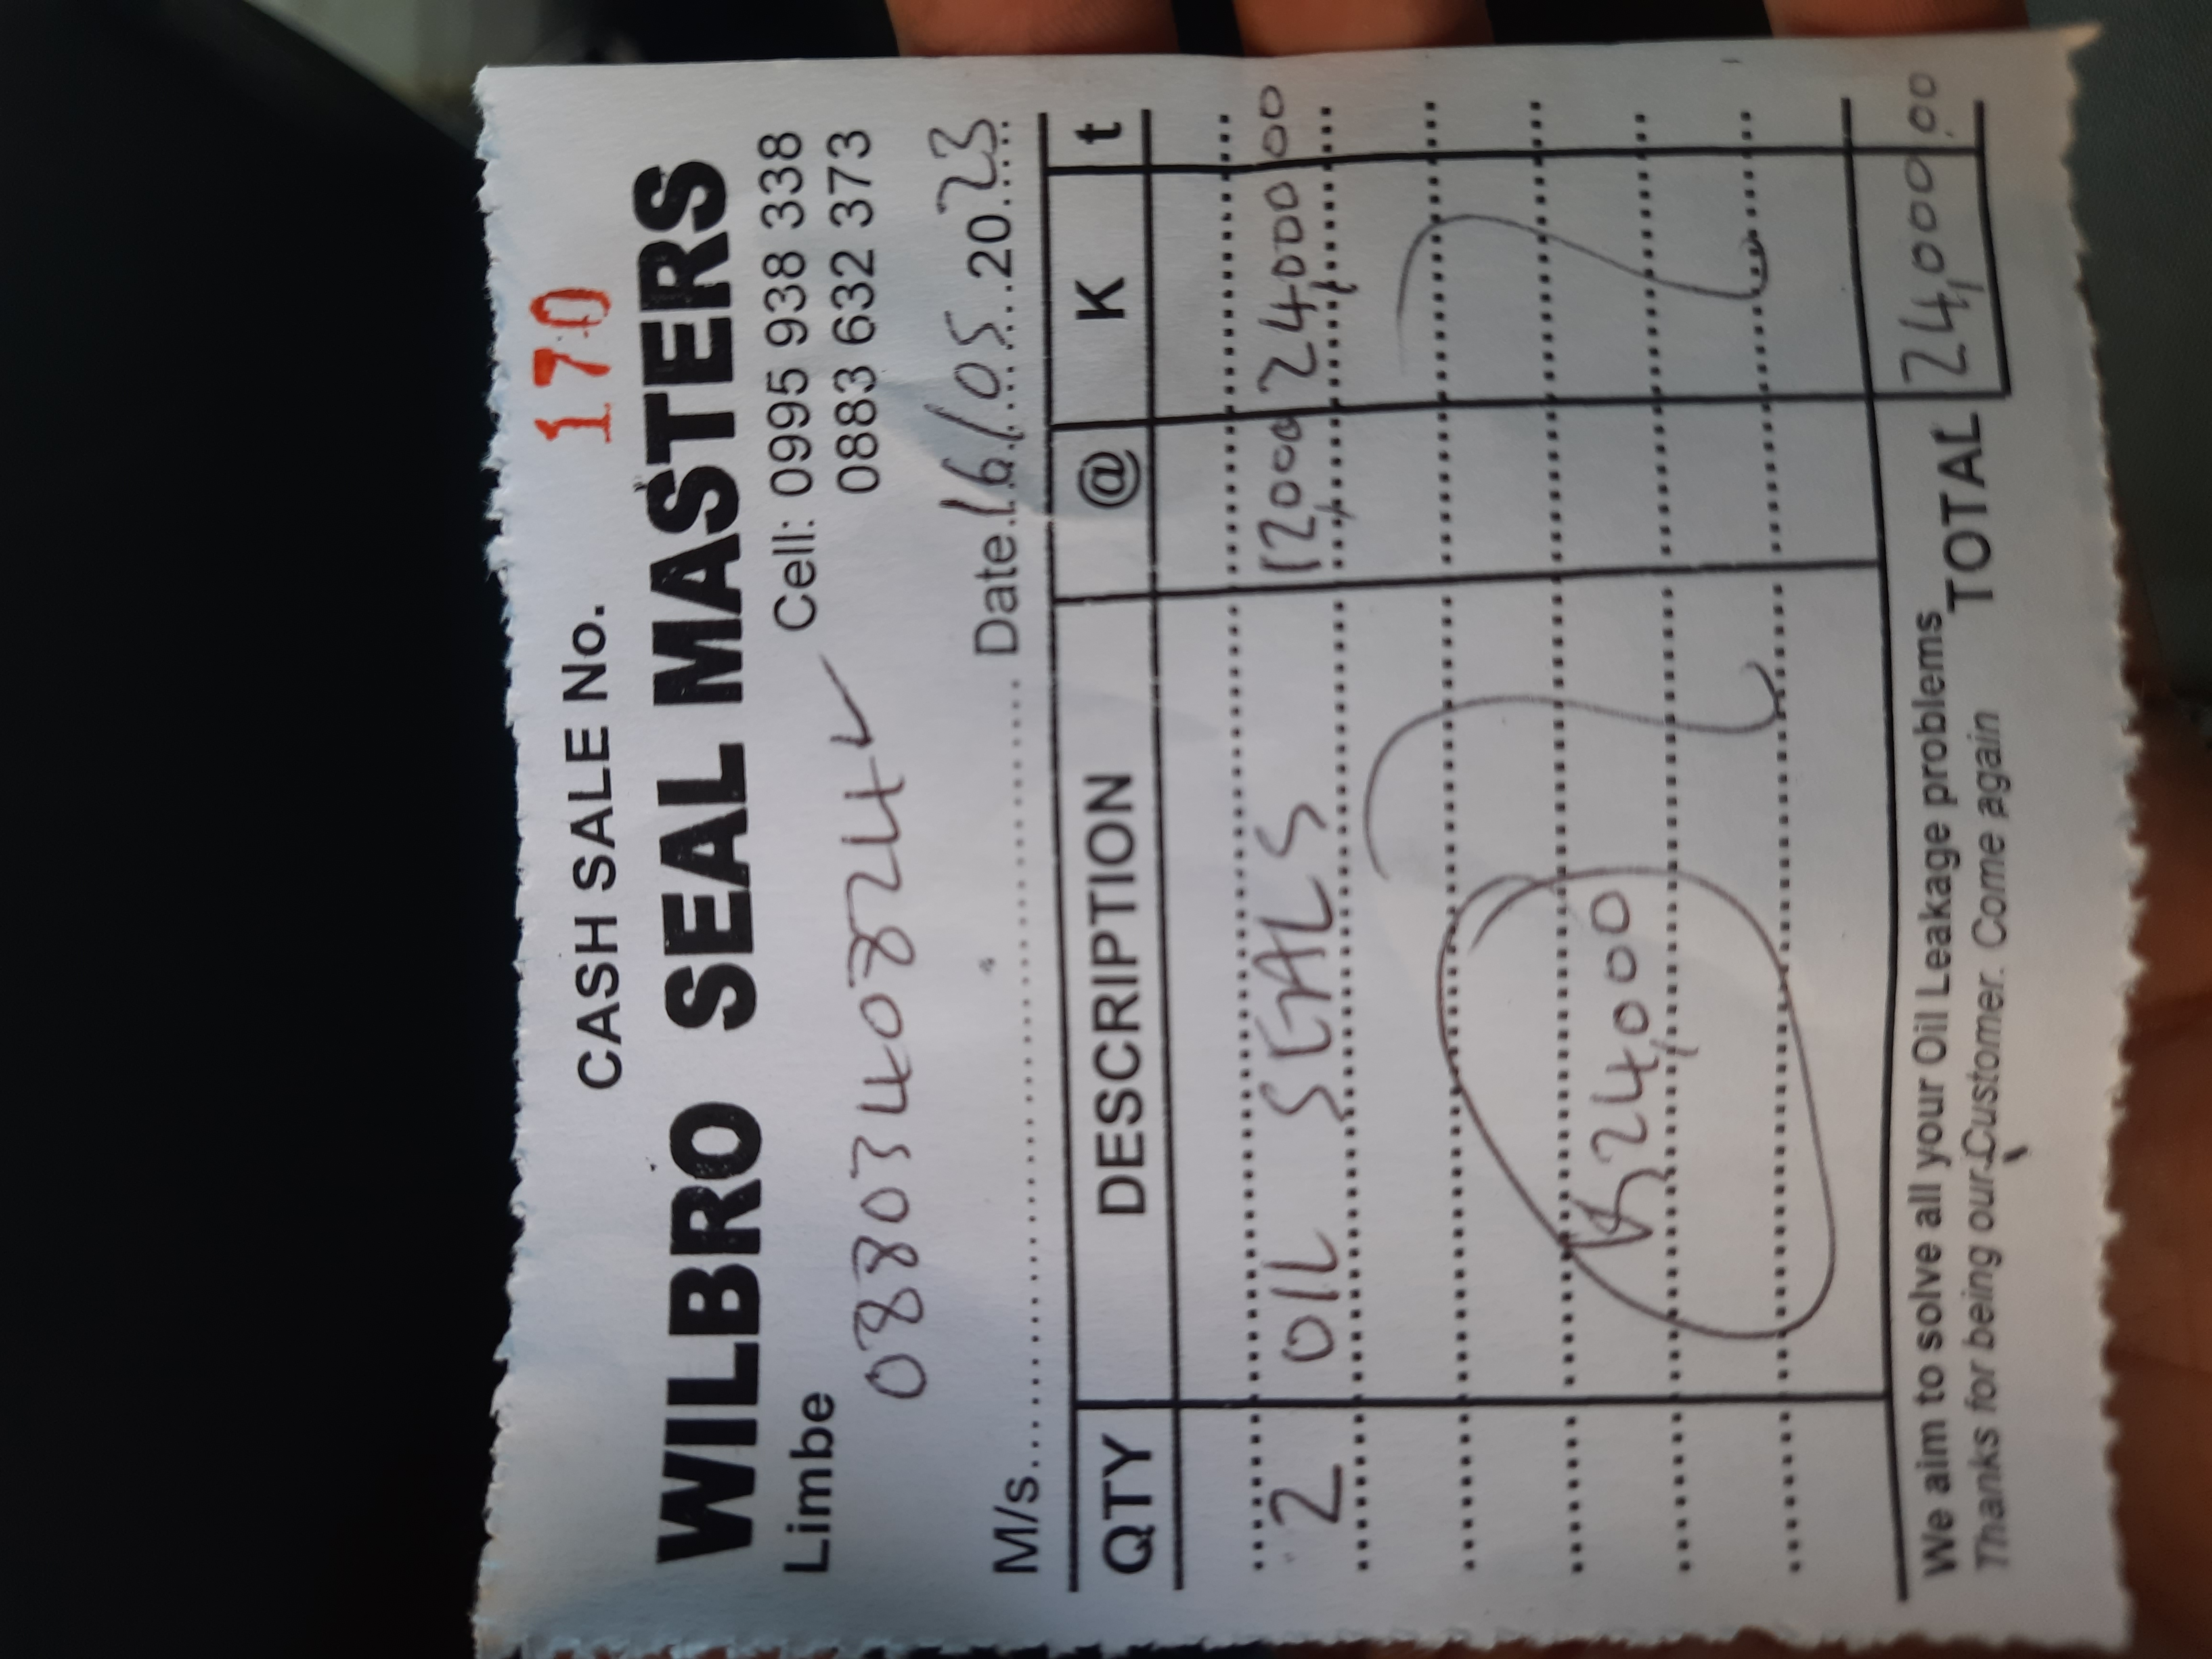 CASH SALE No. 170
WILBRO SEAL MASTERS
Limbe Cell: 0995 938 338
0883 632 373
0880340824
M/s.............................................. Date 16/05 2023
QTY DESCRIPTION @ K t
2 OIL SEALS 12,000 24,000 00
K24,000
We aim to solve all your Oil Leakage problems
Thanks for being our Customer. Come again
TOTAL 24,000.00